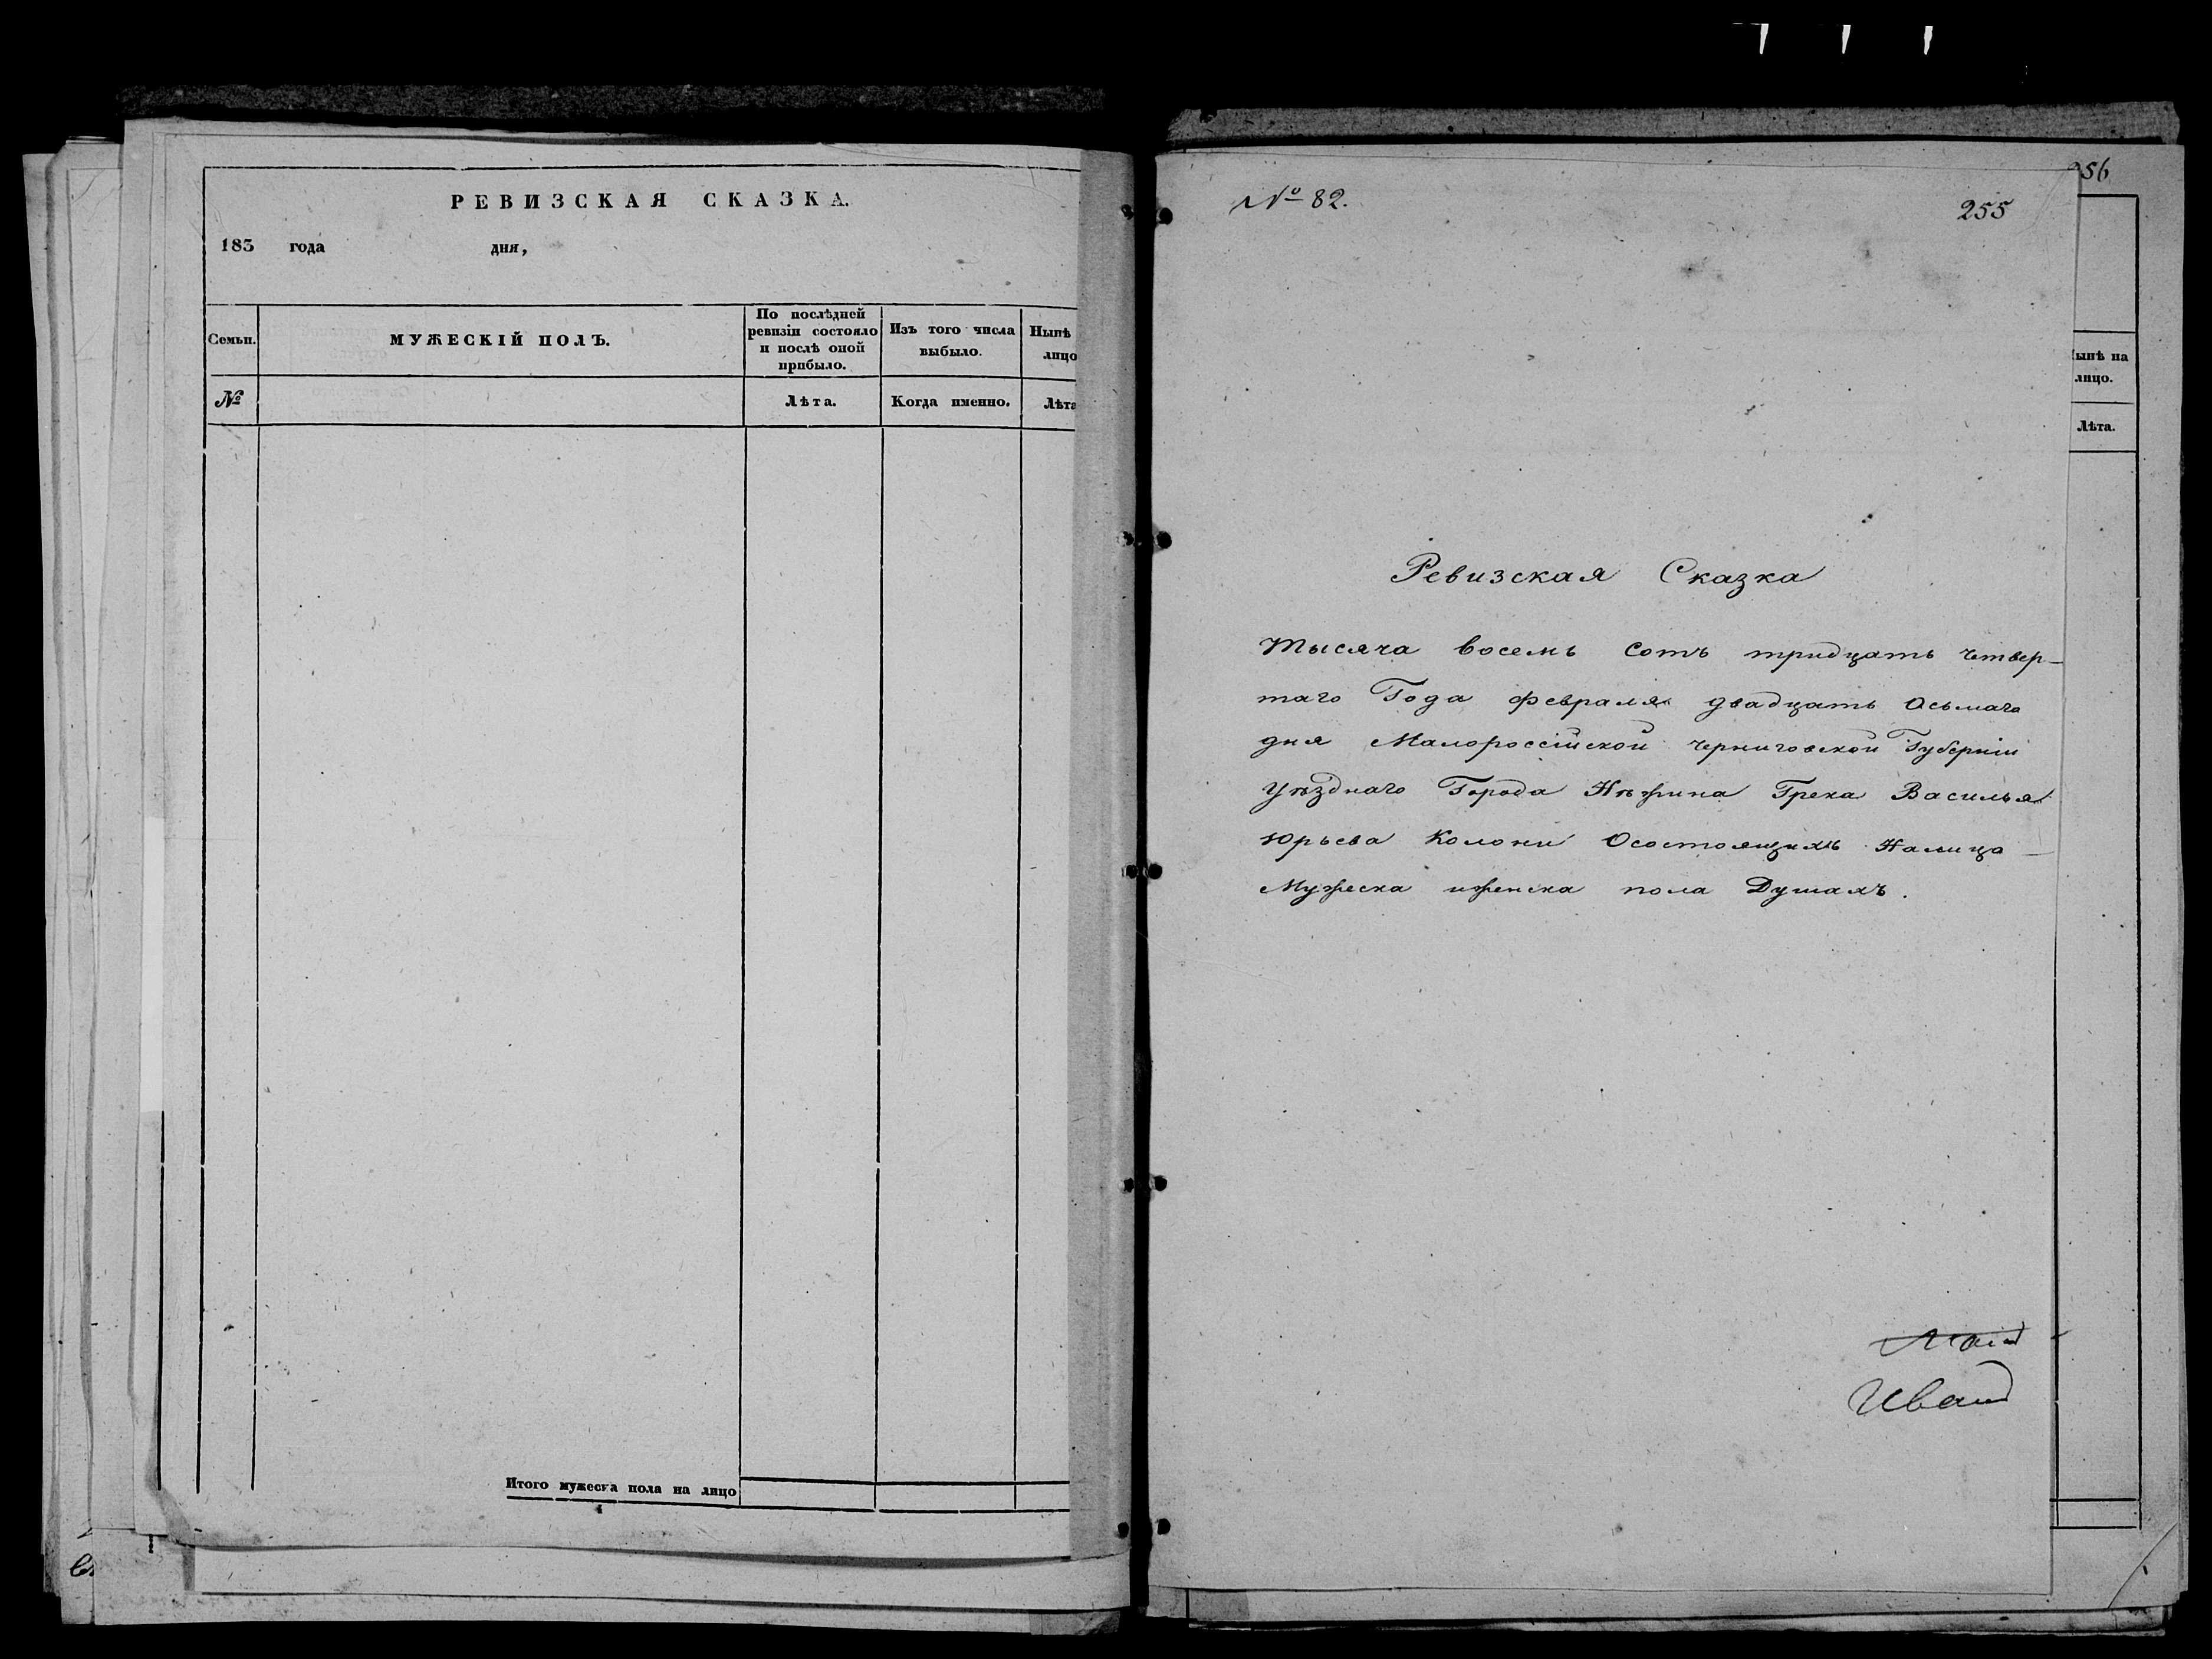 РЕВИЗСКАЯ СКАЗКА.
183 года дня,
Семьи.
МУЖЕСКІЙ ПОЛЪ.
По послѣдней
ревизіи состояло
и послѣ оной
прибыло.
Изъ того числа
выбыло.
Нынѣ
лицо
№
Лѣта.
Когда именно.
Лѣта
Итого мужеска пола на лицо
№ 82.
255
Ревизская Сказка
Тысяча восемь сотъ тридцать четвер-
таго Года февраля двадцать Осьмаго
дня Малороссійской Черниговской Губерніи
Уѣзднаго Города Нѣжина Грека Василья
Юрьева Колони Осостоящихъ Налицо
Мужеска иженска пола Душахъ.
Иван
56
Нынѣ на
лицо.
Лѣта.